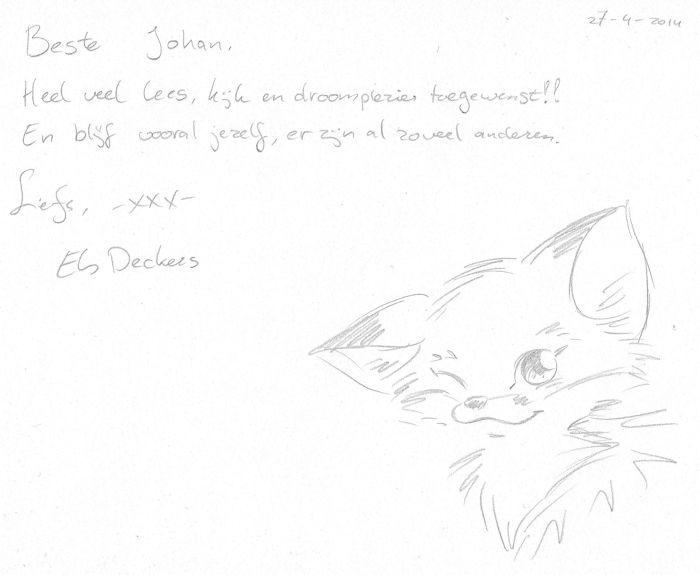 27-4-2014
Beste Johan,
Heel veel lees, kijk en droomplezier toegewenst!!
En blijf vooral jezelf, er zijn al zoveel anderen.
Liefs, -xxx-
Els Deckers